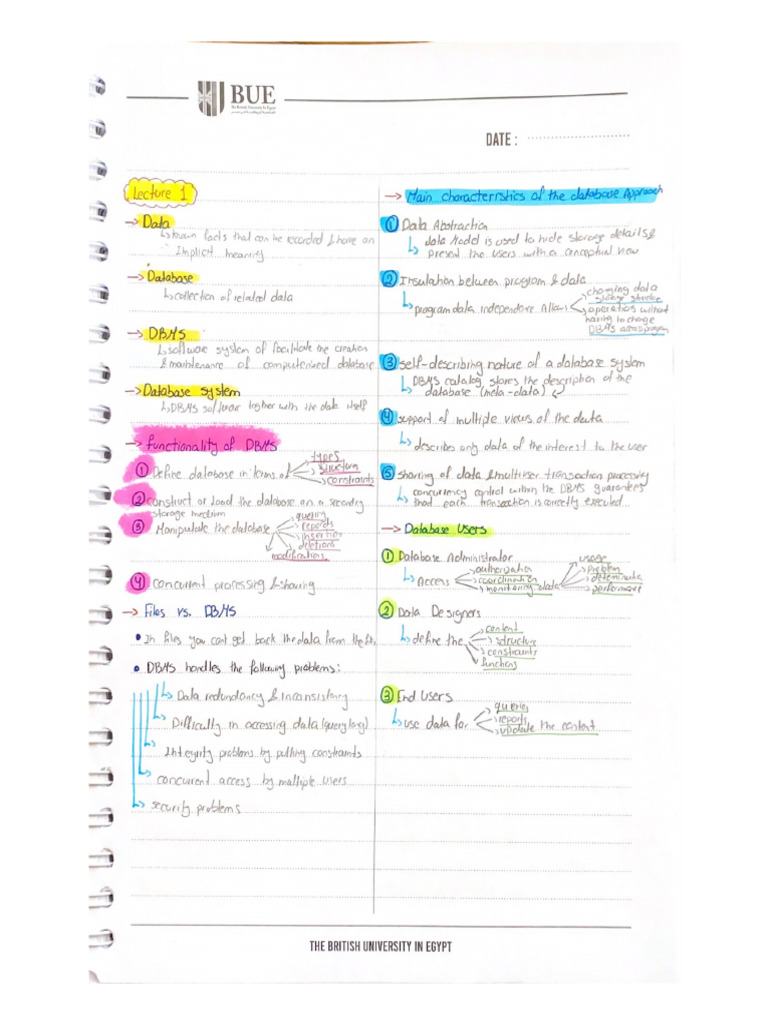 BUE
The British University in Egypt
DATE :
Lecture 1
→ Data
↳ known facts that can be recorded & have an
Implicit meaning
→ Database
↳ collection of related data
→ DBMS
↳ software system of facilitate the creation
& maintenance of computerized database
→ Database system
↳ DBMS software togther with the data itself
→ functionality of DBMS
① Define database in terms of
types
structure
constraints
② Construct or Load the database on a secondry
storage medium
③ Manipulate the database
quering
reports
insertion
deletions
modifications
④ Concurrent processing & sharing
→ Files vs. DBMS
• In files you cant get back the data from the file
• DBMS handles the following problems:
↳ Data redundancy & inconsistary
↳ Difficilly in accessing data (query lang)
↳ Integrity problems by putting constraints
↳ concurrent access by multiple users
↳ security problems
→ Main characterrstics of the database Approach
① Data Abstraction
↳ data Model is used to hide storage details &
present the users with a conceptual view
② Insulation between program & data
↳ program data independence Allows
changing data
storage structure
operations without
having to change
DBMS access program
③ self-describing nature of a database system
↳ DBMS catalog stores the description of the
database (meta-data)
④ support of multiple views of the data
↳ describes only data of the interest to the user
⑤ sharing of data & multiuser transaction processing
↳ concurrency control within the DBMS guarantees
that each transaction is correctly executed
→ Database Users
① Database Administrator
↳ Access
authorization
coordination
monitoring data
usage
problem
performance
② Data Designers
↳ define the
content
structure
constraints
functions
③ End Users
↳ use data for
queries
reports
update the content
THE BRITISH UNIVERSITY IN EGYPT